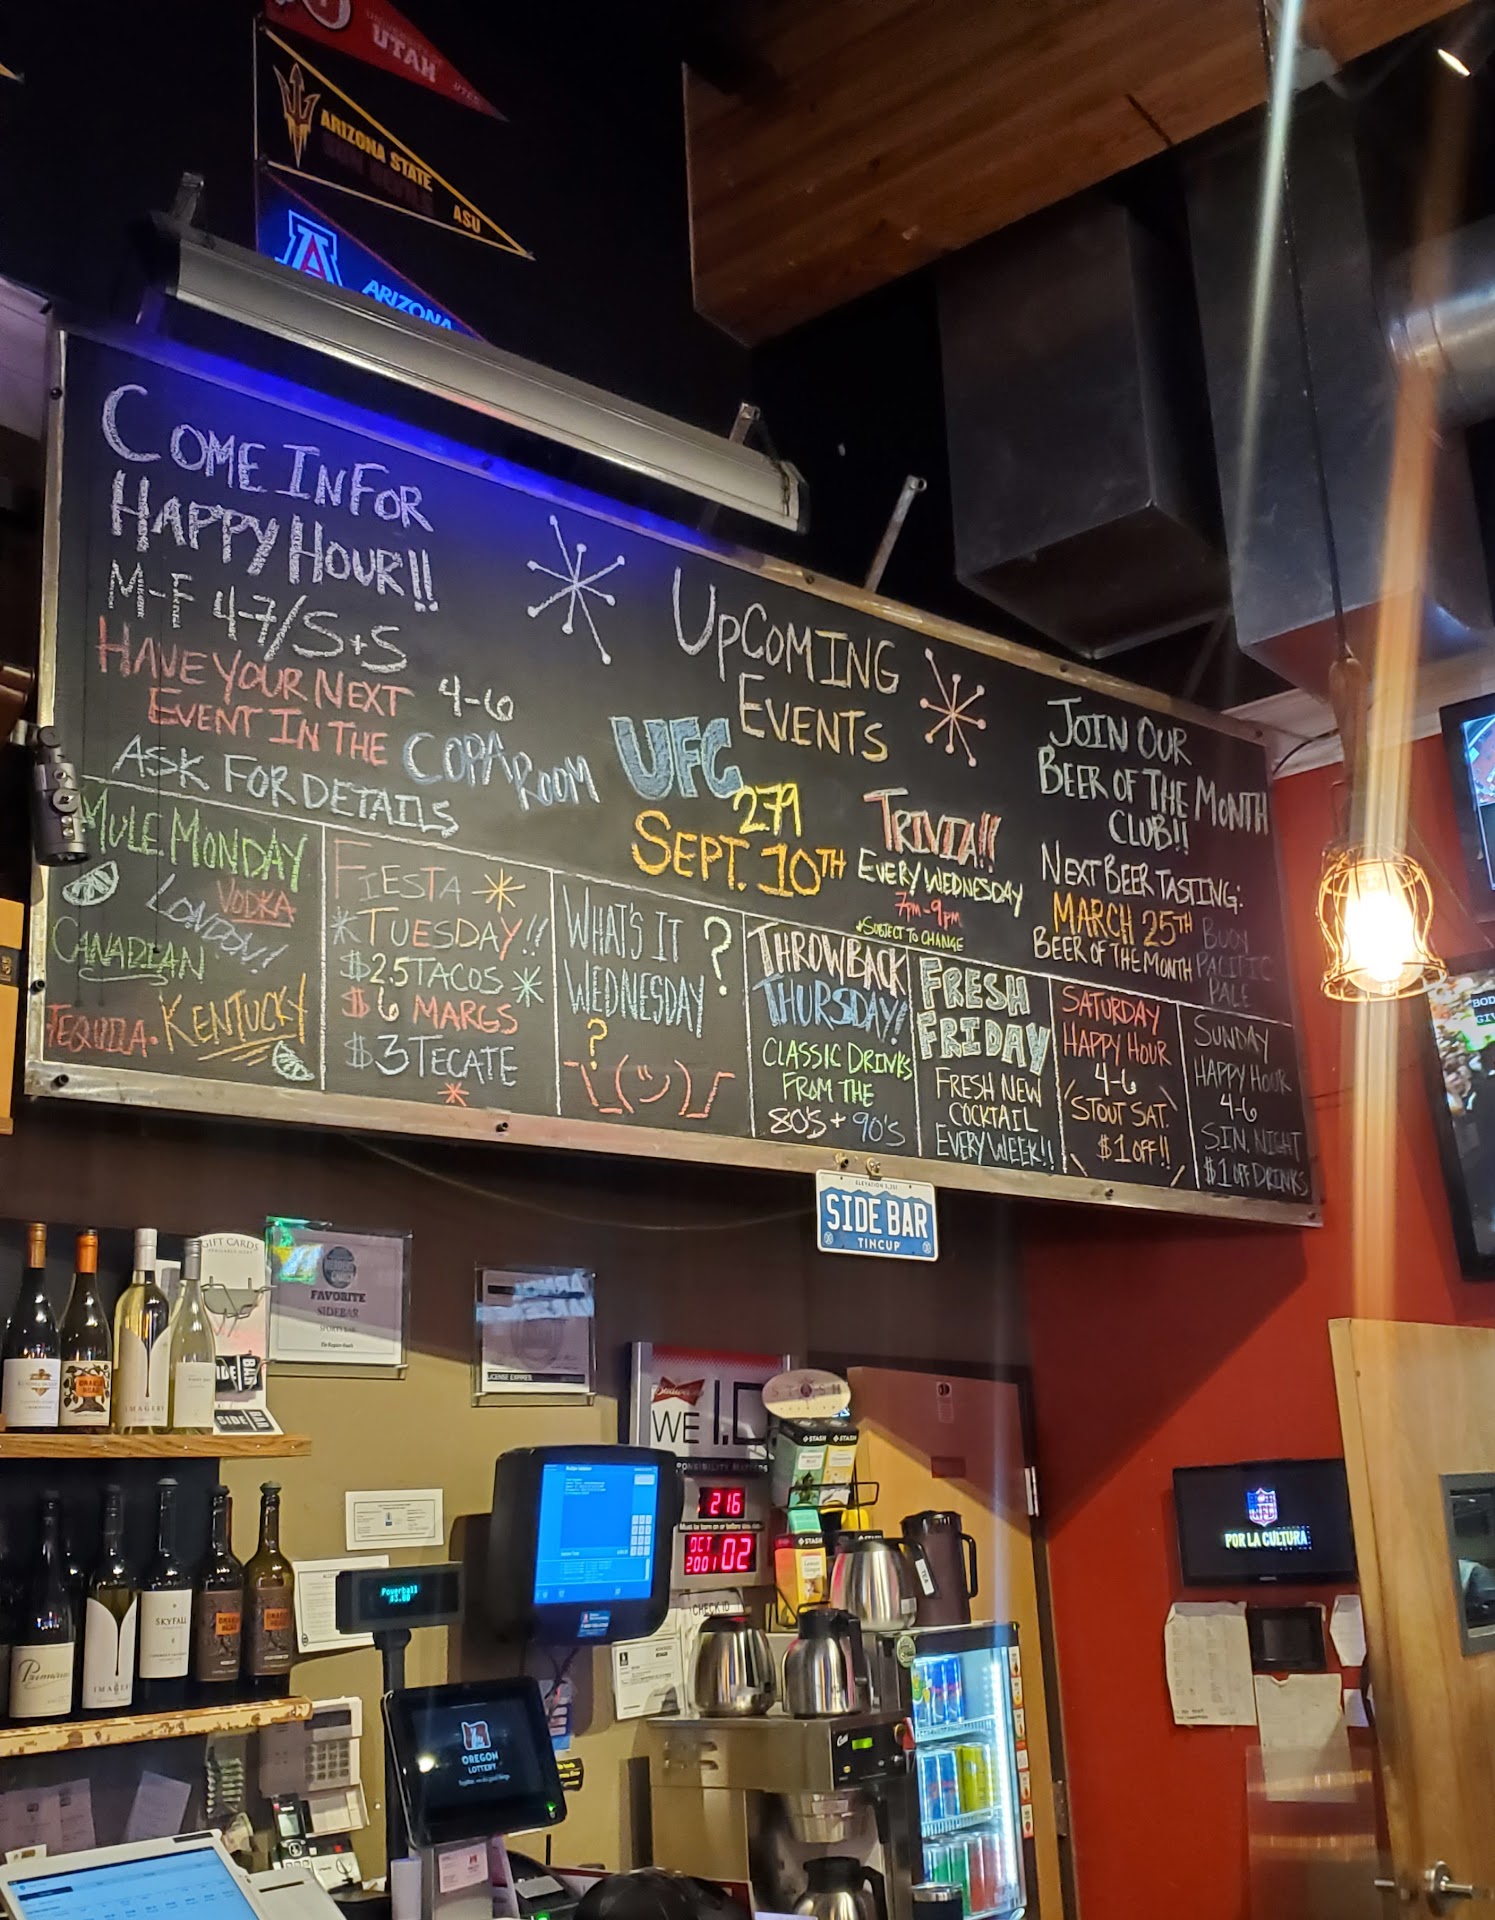 UTAH
UTES
ARIZONA STATE
ASU
A
ARIZONA
COME IN FOR
HAPPY HOUR!!
M-F 4-7/S+S
4-6
HAVE YOUR NEXT
EVENT IN THE COPA ROOM
ASK FOR DETAILS
UPCOMING
EVENTS
UFC
279
SEPT. 10TH
TRIVIA!!
EVERY WEDNESDAY
7PM-9PM
*SUBJECT TO CHANGE
JOIN OUR
BEER OF THE MONTH
CLUB!!
NEXT BEER TASTING:
MARCH 25TH
BEER OF THE MONTH
BUOY
PACIFIC
PALE
MULE MONDAY
VODKA
LONDON!
CANADIAN
TEQUILA · KENTUCKY
FIESTA
TUESDAY!!
$2.5 TACOS
$6 MARGS
$3 TECATE
WHAT'S IT
WEDNESDAY
?
?
THROWBACK
THURSDAY!
CLASSIC DRINKS
FROM THE
80'S + 90'S
FRESH
FRIDAY
FRESH NEW
COCKTAIL
EVERY WEEK!!
SATURDAY
HAPPY HOUR
4-6
STOUT SAT.
$1 OFF!!
SUNDAY
HAPPY HOUR
4-6
S.I.N. NIGHT
$1 OFF DRINKS
SIDE BAR
TINCUP
GIFT CARDS
FAVORITE
SIDEBAR
SIDE BAR
LICENSE EXPIRES
Budweiser
WE I.D.
STASH
STASH
STASH
216
OCT
2001 02
CHECK ID
TEA
IMAGERY
SKYFALL
Primarius
Powerball
OREGON
LOTTERY
NFL
POR LA CULTURA